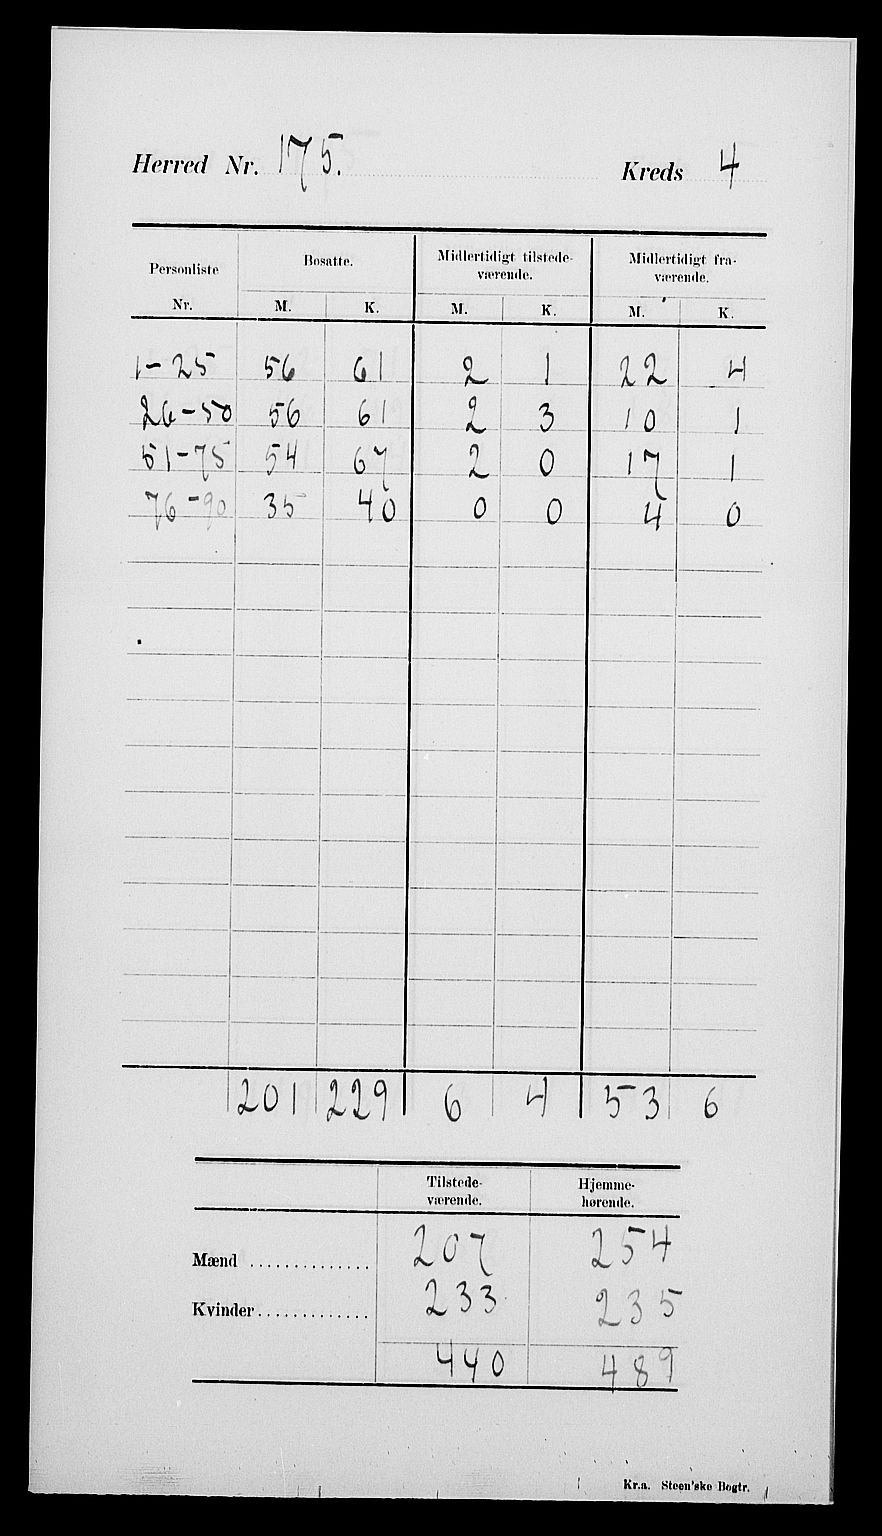 Herred Nr. 175. Kreds 4
Personliste Nr. Bosatte. Midlertidigt tilstede-værende. Midlertidigt fra-værende.
M. K. M. K. M. K.
1-25 56 61 2 1 22 4
26-50 56 61 2 3 10 1
51-75 54 67 2 0 17 1
76-90 35 40 0 0 4 0
201 229 6 4 53 6
Tilstede-værende. Hjemme-hørende.
Mænd .............. 207 254
Kvinder............. 233 235
440 489
Kr.a. Steen'ske Bogtr.